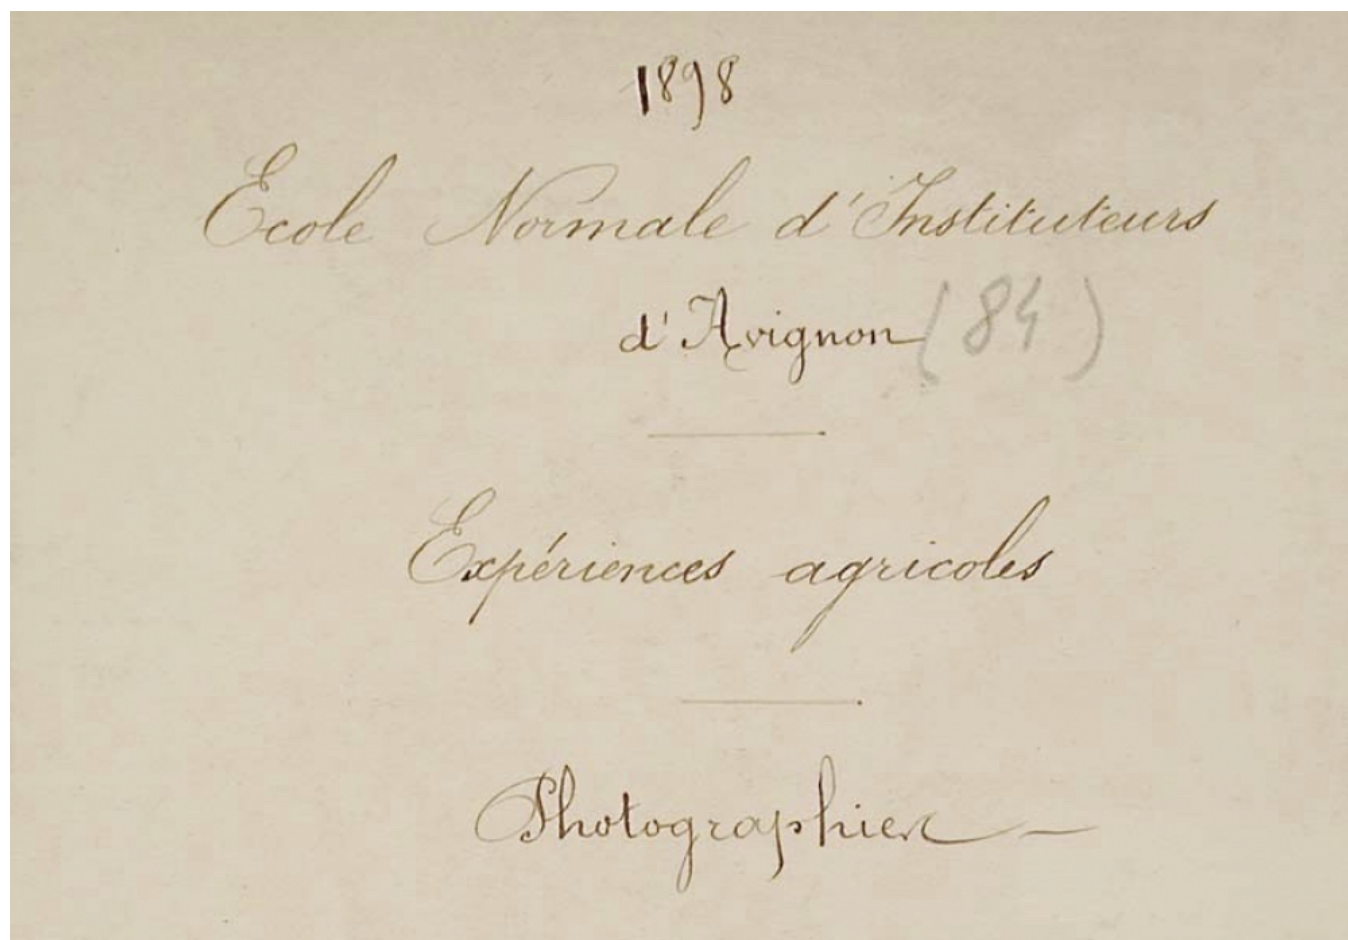 1898
Ecole Normale d'Instituteurs
d'Avignon (84)
Expériences agricoles
Photographies